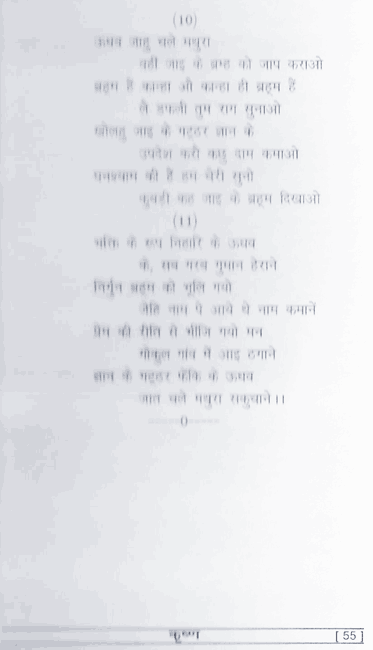 (10)
ऊधव जाहु चले मथुरा
वहीं जाइ के ब्रम्ह को जाप कराओ
ब्रहम है कान्हा औ कान्हा ही ब्रहम हैं
लै डफली तुम राग सुनाओ
खोलहु जाइ के गट्ठर ज्ञान के
उपदेश करौ कछु दाम कमाओ
घनश्याम की हैं हम चेरी सुनो
कुबड़ी कह जाइ के ब्रहम दिखाओ
(11)
भक्ति के रूप निहारि के ऊधव
के, सब गरब गुमान हेराने
निर्गुन ब्रहम को भूलि गयो
जेहि नाम पे आये थे नाम कमानें
प्रेम की रीति से भीजि गयो मन
गोकुल गांव में आइ ठगाने
ज्ञान के गट्ठर फेंकि के ऊधव
जात चले मथुरा सकुचाने।।
0
[ 55 ]